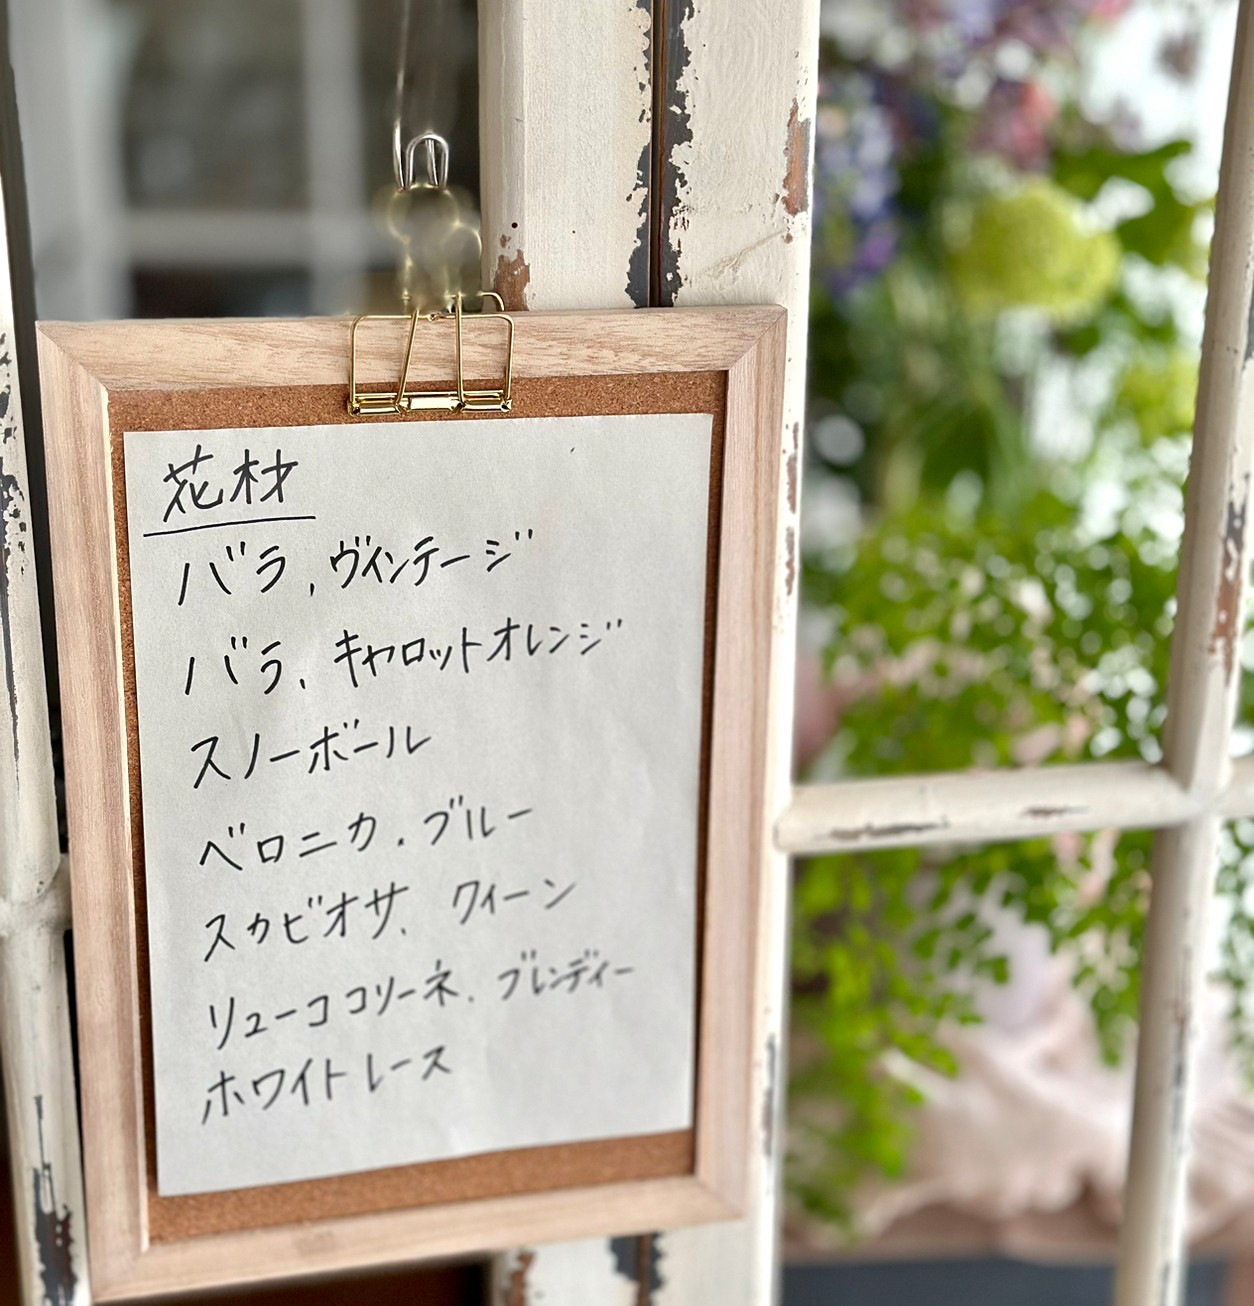 花材
バラ、ヴィンテージ
バラ、キャロットオレンジ
スノーボール
ベロニカ、ブルー
スカビオサ、クイーン
リューココリーネ、ブレンディー
ホワイトレース